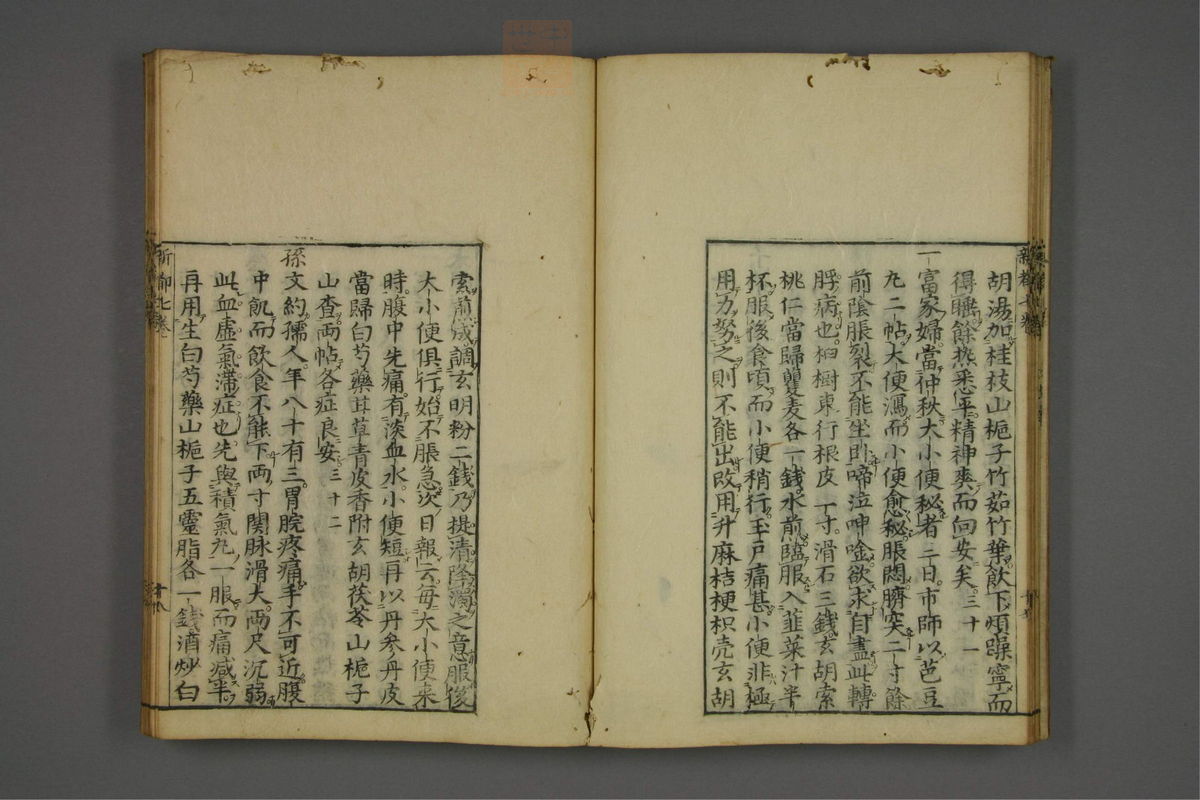 胡湯加桂枝山梔子竹茹竹葉飲下煩躁寧而
得睡餘热悉平精神爽而向安矣三十一
一富家婦當仲秋大小便秘者三日市師以芭豆
九二帖大便瀉而小便愈秘脹悶臍突二寸餘
前陰脹裂不能坐卧啼泣呻唫欲求自盡此轉
脬病也桕樹東行根皮一寸滑石三錢玄胡索
桃仁當歸瞿麦各一錢水煎臨服入韮菜汁半
杯服後食頃而小便稍行玉戸痛甚小便非極
用力努之則不能出改用升麻桔梗枳壳玄胡
索煎成調玄明粉二錢乃提清降濁之意服後
大小便俱行始不脹急次日報云每大小便来
時腹中先痛有淡血水小便短再以丹参丹皮
當歸白芍藥甘草青皮香附玄胡茯苓山梔子
山查两帖各症良安三十二
孫文約孺人年八十有三胃脘疼痛手不可近腹
中飢而飲食不能下两寸関脉滑大两尺沉弱
此血虛氣滞症也先與積氣丸一服而痛減半
再用生白芍藥山梔子五靈脂各一錢酒炒白